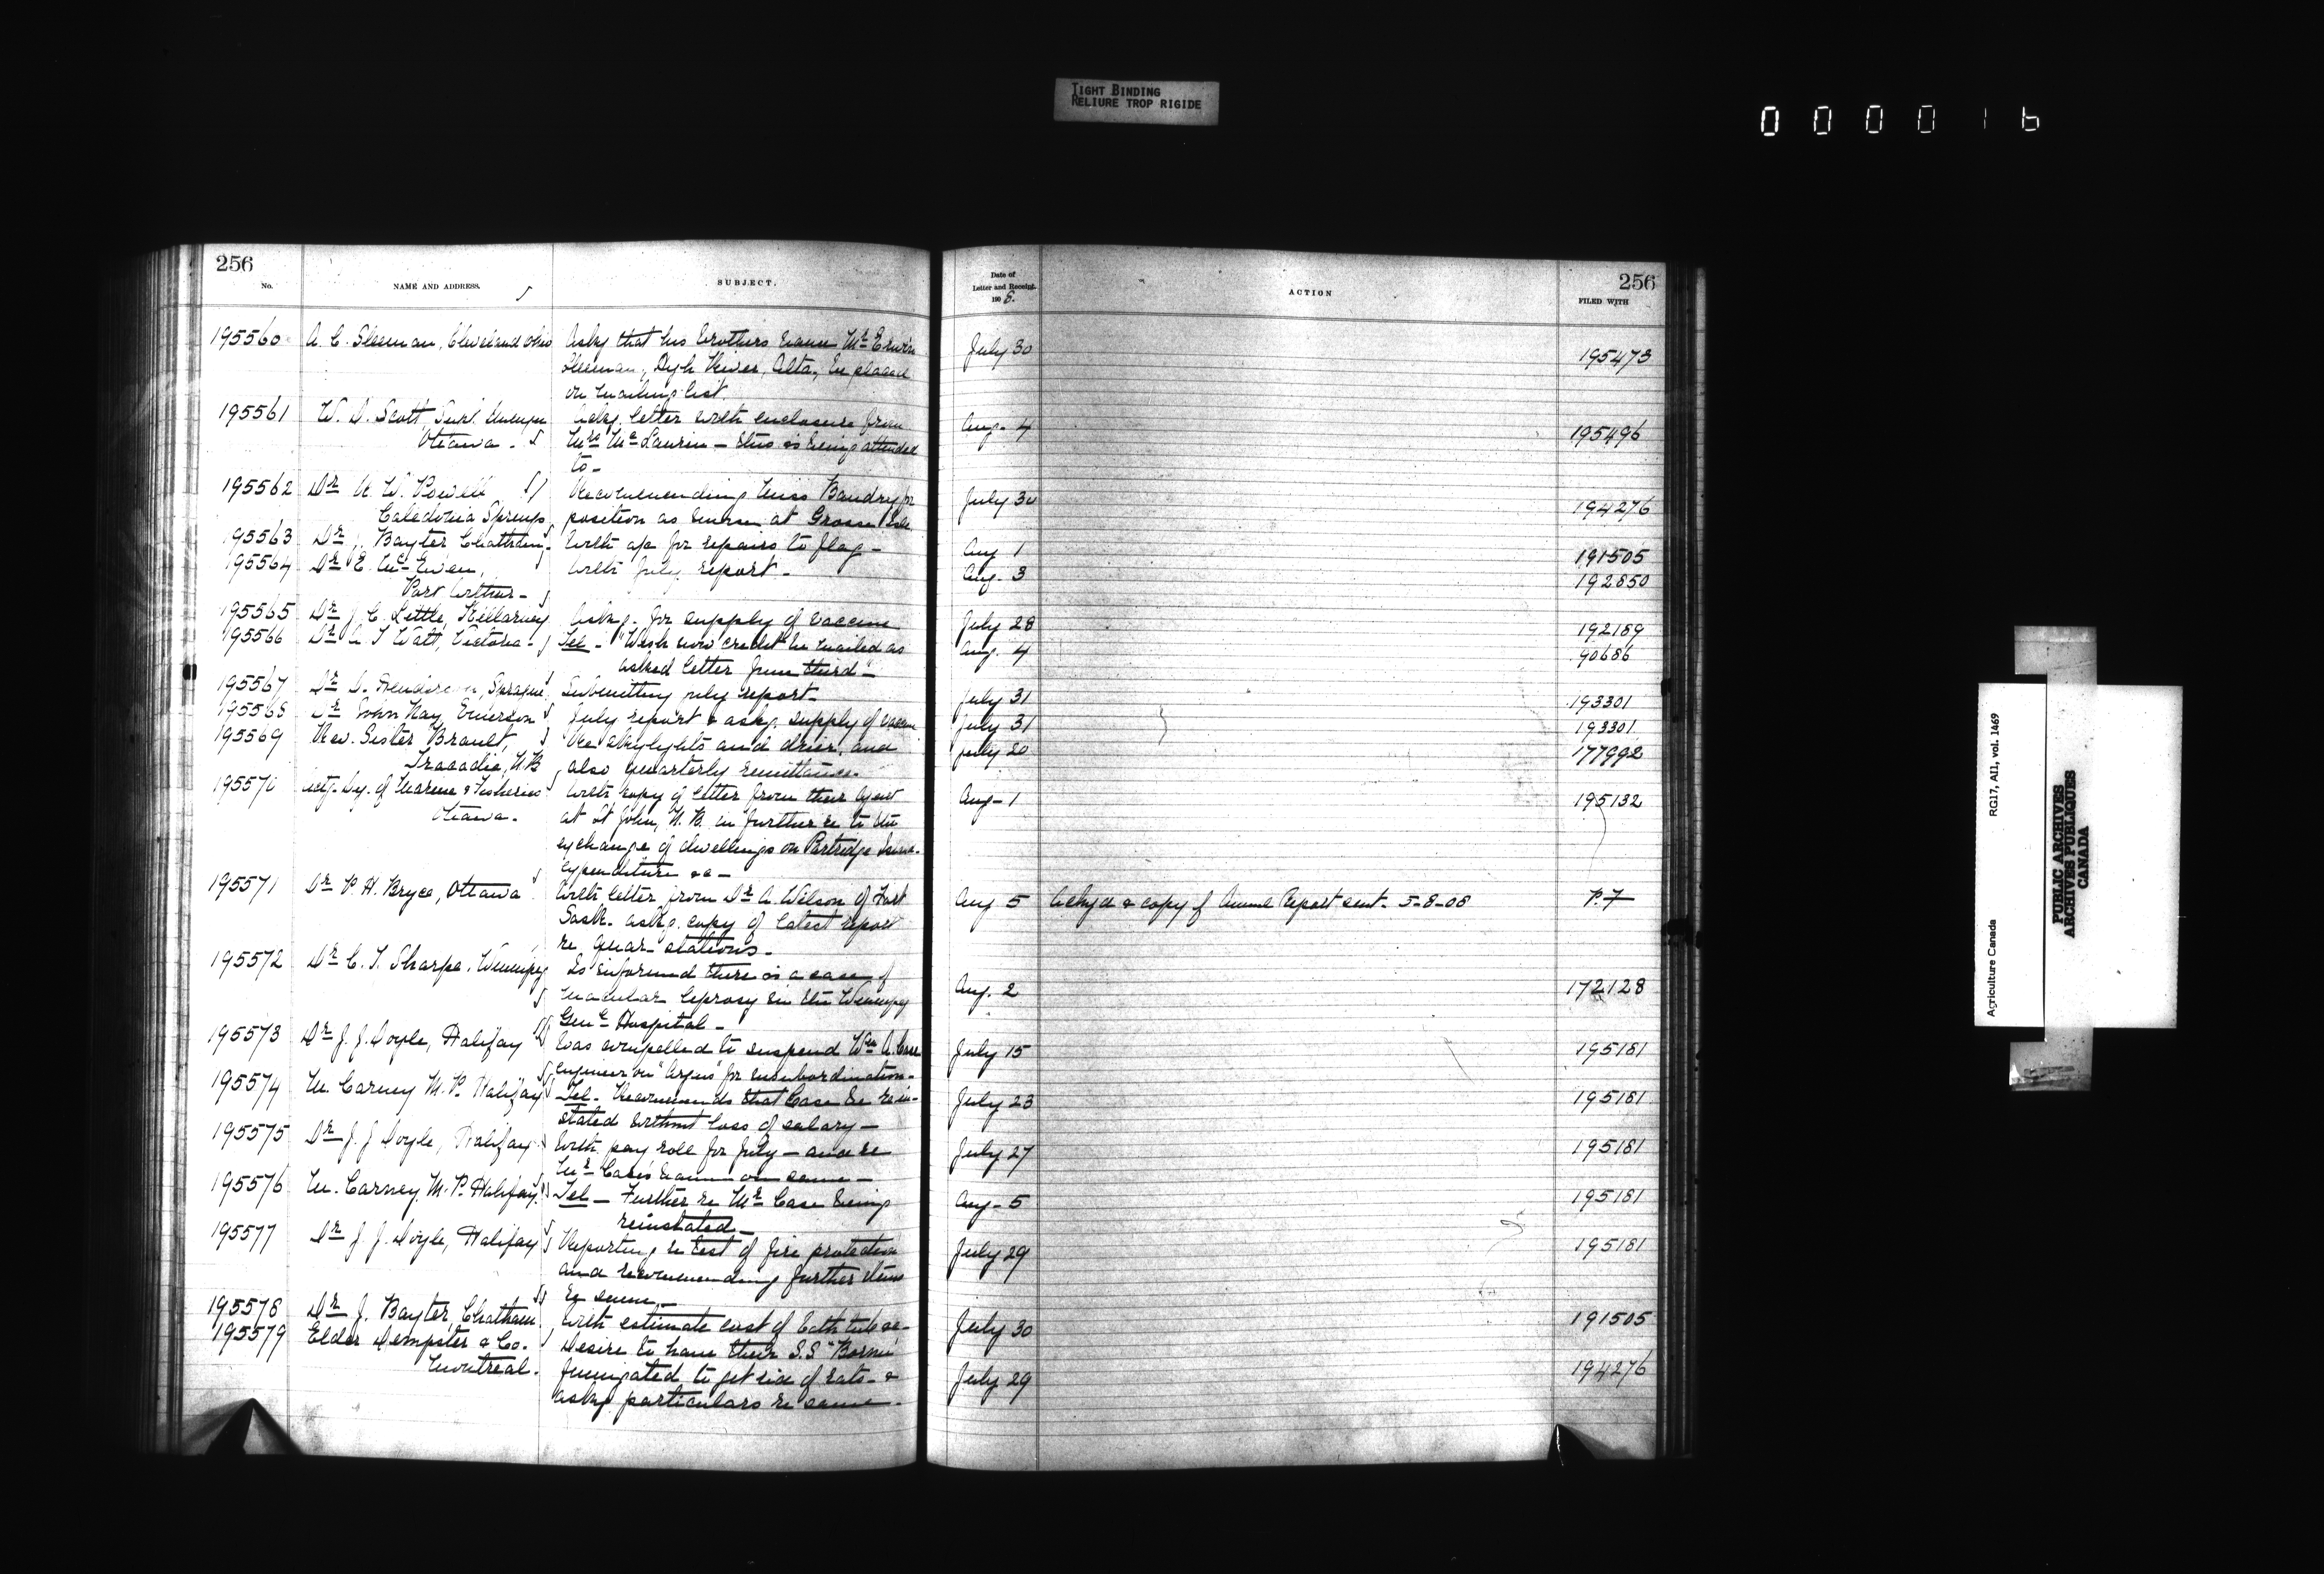 TIGHT BINDING
RELIURE TROP RIGIDE
000016
256
No. NAME AND ADDRESS. SUBJECT.
Date of
Letter and Receipt.
1908. ACTION FILED WITH
256
195560 A. C. Sleeman, Cleveland Ohio Askg that his brothers name Mr Erwin July 30 195473
Sleeman, High River, Alta, be placed
on mailing list.
195561 W. D. Scott, Supt. Immign Askg. letter with enclosure from Aug. 4 195496
Ottawa - Mrs McLaurin - this is being attended
to -
195562 Dr R. W. Powell Recommending Miss Baudry for July 30 194276
Caledonia Springs position as nurse at Grosse Isle
195563 Dr J. Baxter Chatham - With a/c for repairs to flag - Aug 1 191505
195564 Dr E. McEwen, With July report - Aug. 3 192850
Port Arthur -
195565 Dr J. C. Little, Killarney Askg. for supply of vaccine July 28 192189
195566 Dr A T Watt, Victoria - Tel - "Wish new credit be mailed as Aug. 4 90686
asked letter June third" -
195567 Dr D. Henderson, Sprague Submitting July report - July 31 193301
195568 Dr John Kay, Emerson July report & askg. supply of vaccine July 31 193301
195569 Rev. Sister Brault, Re skylights and drier, and July 20 177992
Tracadie, N.B also quarterly remittance.
195570 Actg. Dy. of Marine & Fisheries With copy of letter from their Agent Aug - 1 195132
Ottawa. at St John, N. B. in further re to the
exchange of dwellings on Partridge Island -
expenditure &c -
195571 Dr P. H. Bryce, Ottawa With letter from Dr A. Wilson of Fort Aug 5 Ackgd & copy of Annual Report sent - 5-8-08 P. 7
Sask. askg. copy of latest report
re quar - stations -
195572 Dr C. T. Sharpe, Winnipeg Is informed there is a case of Aug. 2 172128
macular leprosy in the Winnipeg
Genl Hospital -
195573 Dr J. J. Doyle, Halifax Was compelled to suspend Wm A. Case July 15 195181
engineer on "Argus" for insubordination -
195574 M. Carney M. P. Halifax Tel - Recommends that Case be rein- July 23 195181
stated without loss of salary -
195575 Dr J. J Doyle, Halifax With pay role for July - and re July 27 195181
Mr Case's name on same -
195576 M. Carney M. P. Halifax. Tel - Further re Mr Case being Aug - 5 195181
reinstated -
195577 Dr J. J. Doyle, Halifax Reporting re test of fire protection July 29 195181
and recommending further items
re same -
195578 Dr J. Baxter, Chatham With estimate cost of bath tubs &c - July 30 191505
195579 Elder Dempster & Co. Desire to have their S.S "Bornu" July 29 194276
Montreal. fumigated to get rid of rats - &
askg particulars re same -
Agriculture Canada RG17, AII, vol. 1469
PUBLIC ARCHIVES
ARCHIVES PUBLIQUES
CANADA